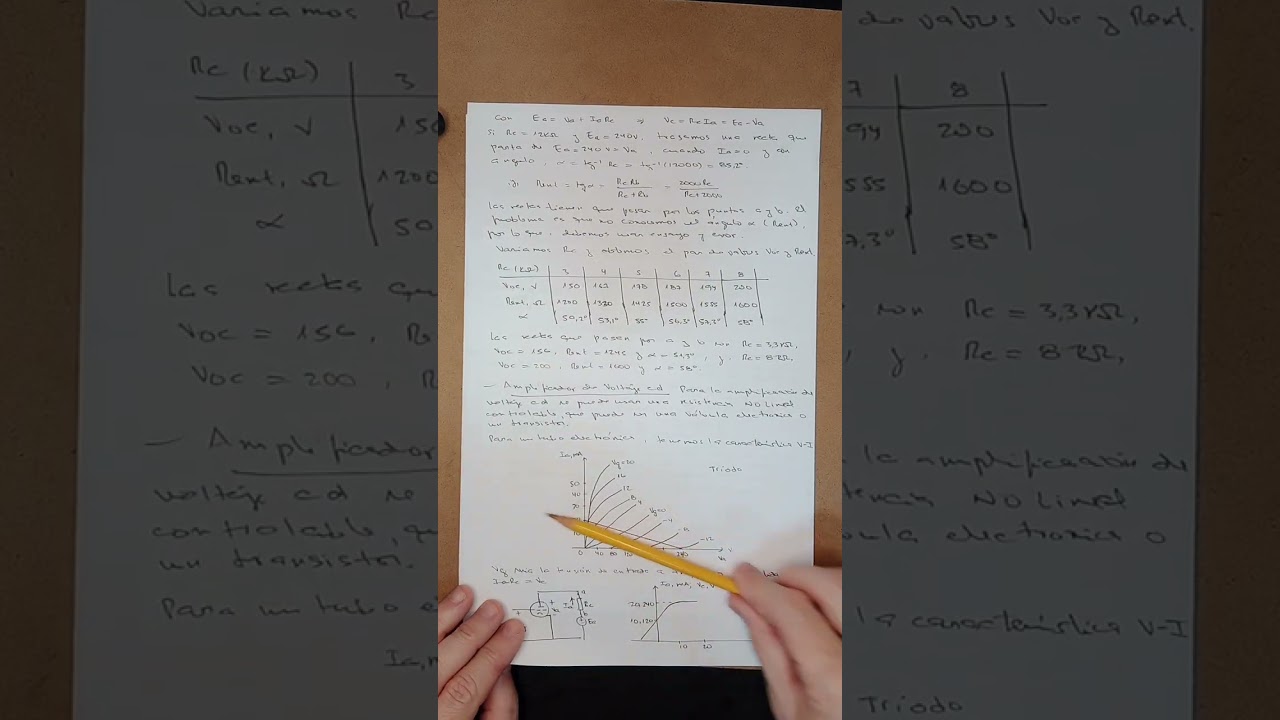 Con Ea = Va + IaRc => Vc = RcIa = Ea - Va
Si Rc = 12KΩ y Ea = 240V, trazamos una recta que
parta de Ea = 240 V = Va, cuando Ia = 0 y con
ángulo, α = tg⁻¹ Rc = tg⁻¹(12000) = 85,2°
Rent = tgα = RcRb / Rc+Rb = 2000Rc / Rc+2000
Las rectas tienen que pasar por los puntos a y b. El
problema es que no conocemos el ángulo α (Rent),
por lo que, debemos usar ensayo y error.
Variamos Rc y obtenemos el par de valores Voc y Rent.
Rc (KΩ) 3 4 5 6 7 8
Voc, V 150 162 178 187 194 200
Rent, Ω 1200 1320 1425 1500 1555 1600
α 50,2° 53,1° 55° 56,3° 57,3° 58°
Las rectas que pasan por a y b son Rc = 3,3KΩ,
Voc = 156, Rent = 1245 y α = 51,3°, y, Rc = 8KΩ,
Voc = 200, Rent = 1600 y α = 58°.
- Amplificador de Voltaje cd Para la amplificación de
voltaje cd se puede usar una resistencia NO Lineal
controlable, que puede ser una válvula electrónica o
un transistor.
Para un tubo electrónico, tenemos la característica V-I
Ia, mA Vg=20 Triodo
16
50 12
40 8 4 Vg=0
-4
-8
10 -12
0 40 80 120 240 V
Va
Vg sea la tensión de entrada
IaRc = Vc
Ia, mA, Vc, V
20,240
10,120
10 20
+ Ia a Rc
Va b
Ea